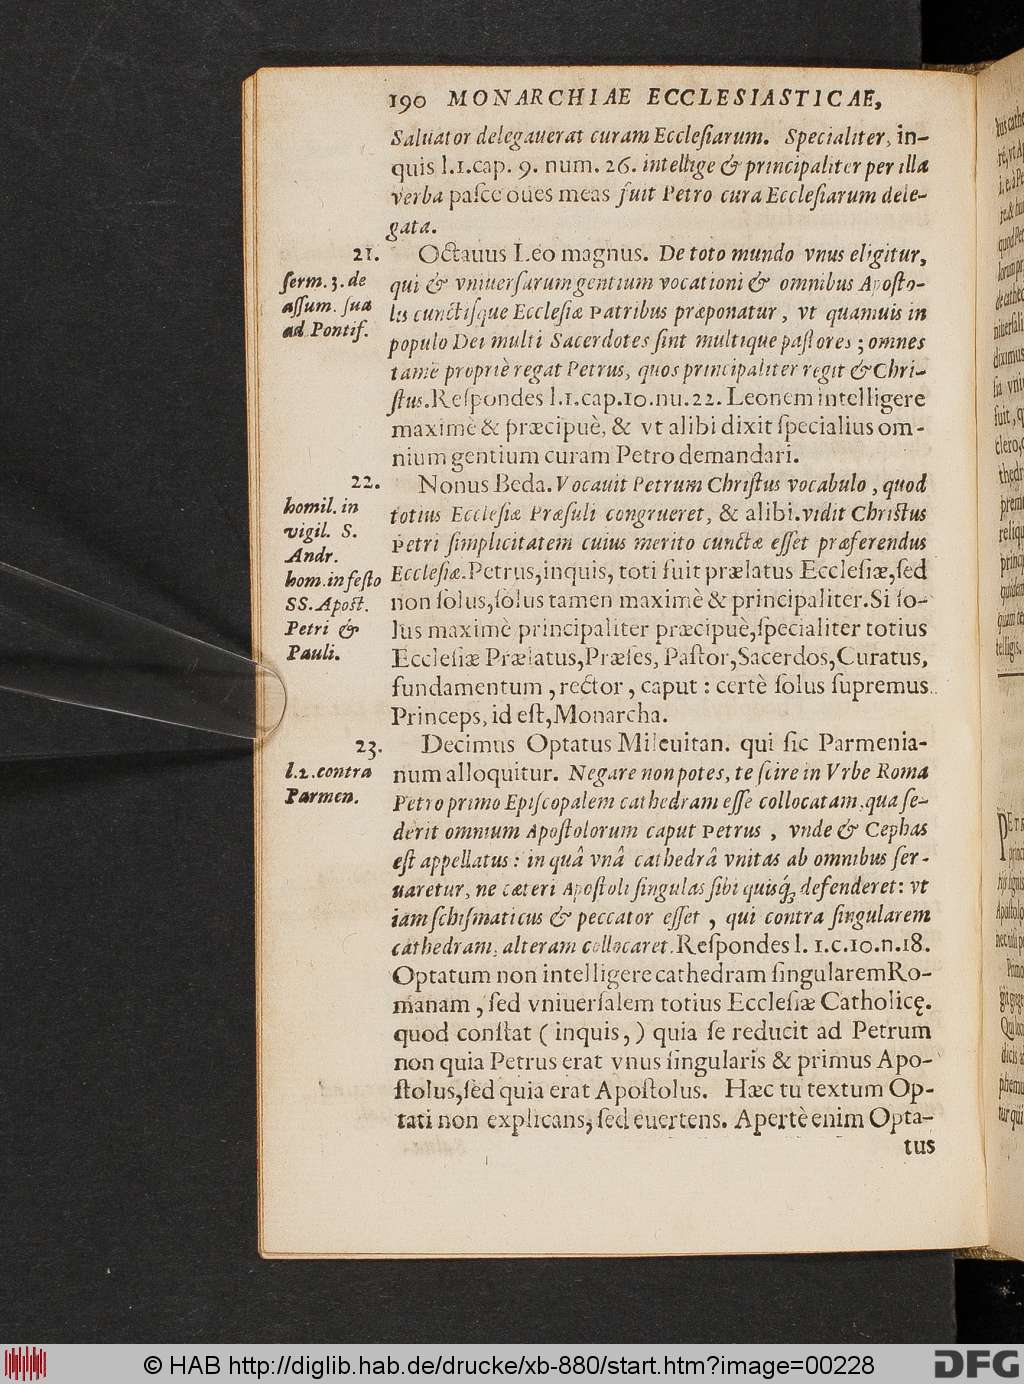 190 MONARCHIAE ECCLESIASTICAE,
Saluator delegauerat curam Eccleſiarum. Specialiter, in-
quis l.1.cap. 9. num. 26. intellige & principaliter per illa
verba paſce oues meas fuit Petro cura Eccleſiarum dele-
gata.
21. Octauus Leo magnus. De toto mundo vnus eligitur,
ſerm. 3. de
aſſum. ſua
ad Pontif.
qui & vniuerſarum gentium vocationi & omnibus Apoſto-
lis cunctiſque Eccleſiæ Patribus præponatur, vt quamuis in
populo Dei multi Sacerdotes ſint multique paſtores; omnes
tamẽ propriè regat Petrus, quos principaliter regit & Chri-
ſtus. Reſpondes l.1.cap.10.nu.22. Leonem intelligere
maximè & præcipuè, & vt alibi dixit ſpecialius om-
nium gentium curam Petro demandari.
22. Nonus Beda. Vocauit Petrum Chriſtus vocabulo, quod
homil. in
vigil. S.
Andr.
hom. in feſto
SS. Apoſt.
Petri &
Pauli.
totius Eccleſiæ Præſuli congrueret, & alibi. vidit Chriſtus
Petri ſimplicitatem cuius merito cunctæ eſſet præferendus
Eccleſiæ. Petrus, inquis, toti fuit prælatus Eccleſiæ, ſed
non ſolus, ſolus tamen maximè & principaliter. Si ſo-
lus maximè principaliter præcipuè, ſpecialiter totius
Eccleſiæ Prælatus, Præſes, Paſtor, Sacerdos, Curatus,
fundamentum, rector, caput: certè ſolus ſupremus
Princeps, id eſt, Monarcha.
23. Decimus Optatus Mileuitan. qui ſic Parmenia-
l.2.contra
Parmen.
num alloquitur. Negare non potes, te ſcire in Vrbe Roma
Petro primo Epiſcopalem cathedram eſſe collocatam, qua ſe-
derit omnium Apoſtolorum caput Petrus, vnde & Cephas
eſt appellatus: in quâ vnâ cathedrâ vnitas ab omnibus ſer-
uaretur, ne cæteri Apoſtoli ſingulas ſibi quisq́; defenderet: vt
iam ſchiſmaticus & peccator eſſet, qui contra ſingularem
cathedram, alteram collocaret. Reſpondes l. 1.c.10.n.18.
Optatum non intelligere cathedram ſingularem Ro-
manam, ſed vniuerſalem totius Eccleſiæ Catholicę.
quod conſtat (inquis,) quia ſe reducit ad Petrum
non quia Petrus erat vnus ſingularis & primus Apo-
ſtolus, ſed quia erat Apoſtolus. Hæc tu textum Op-
tati non explicans, ſed euertens. Apertè enim Opta-
tus
© HAB http://diglib.hab.de/drucke/xb-880/start.htm?image=00228
DFG